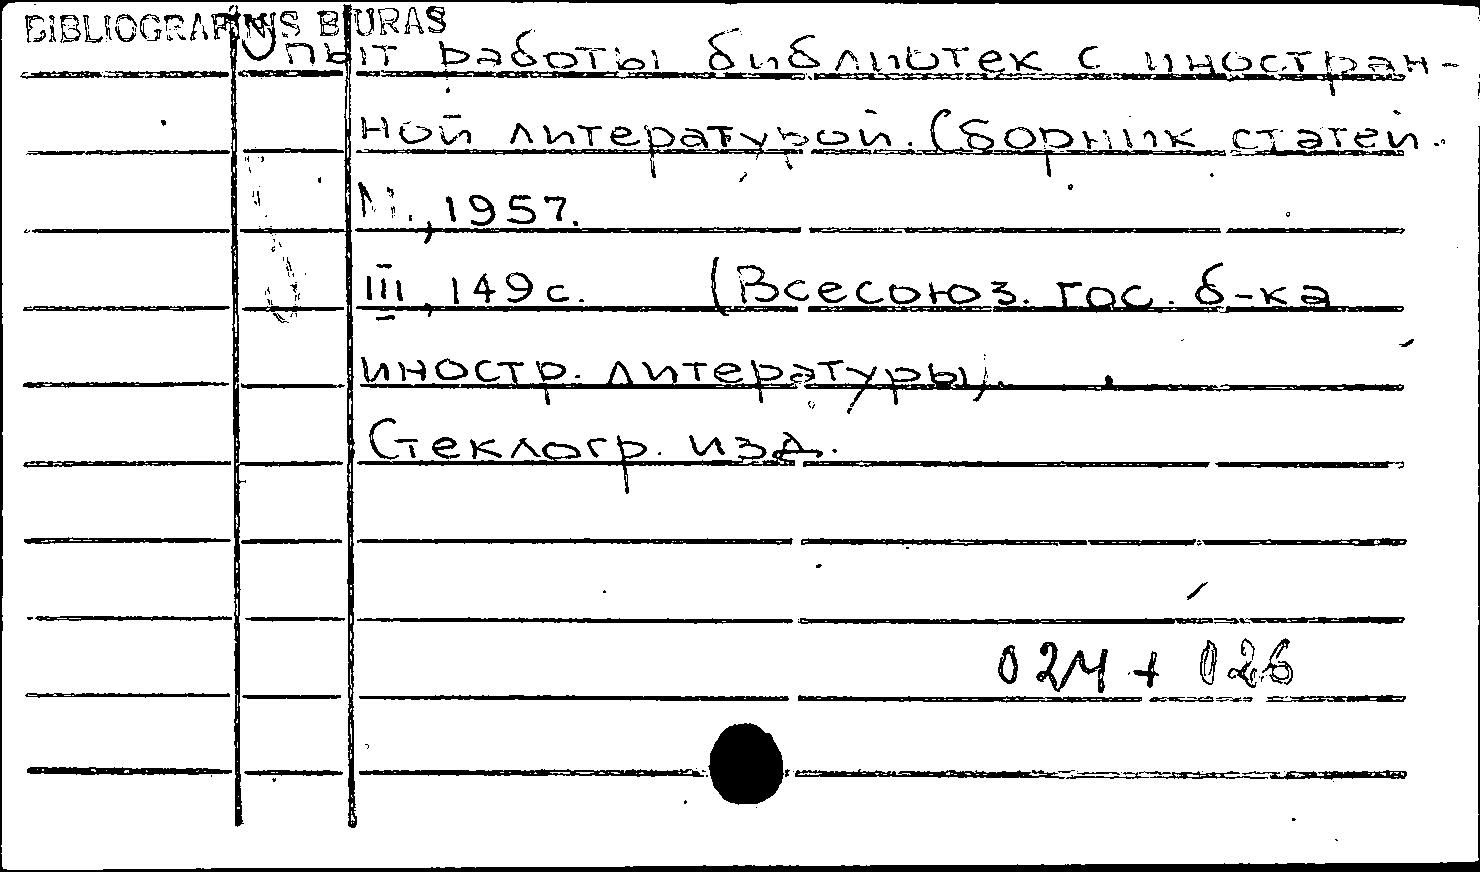 BIBLIOGRAFINIS BIURAS
Опыт работы библиотек с иностран-
ной литературой. Сборник статей.
М., 1957.
III, 149 с. (Всесоюз. гос. б-ка
иностр. литературы).
Стеклогр. изд.
024 + 026